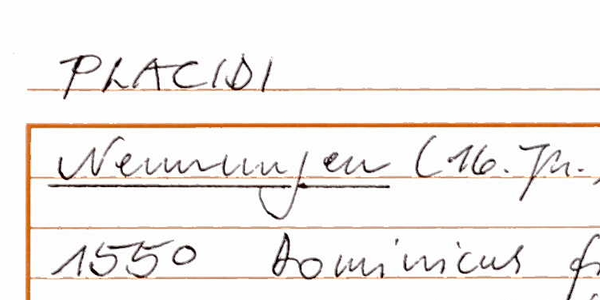 PLACIDI
Nennungen (16. Jh.)
1550 Dominicus